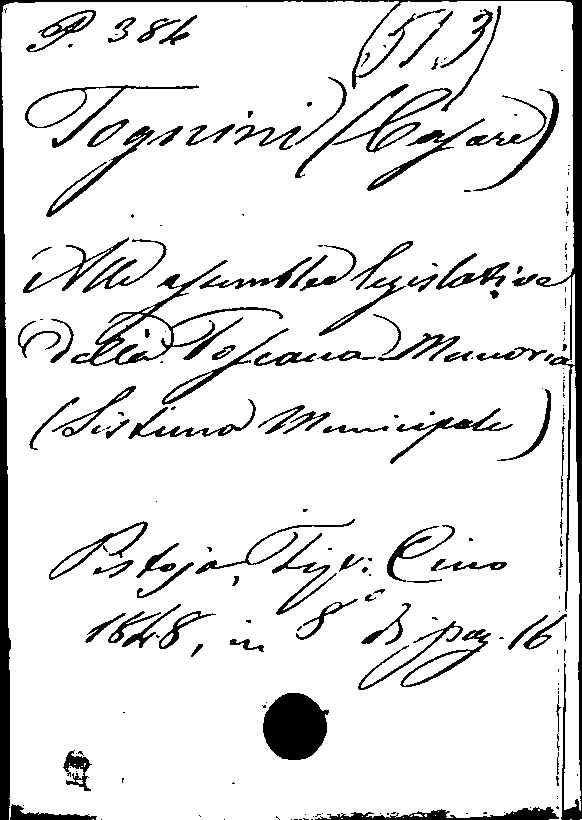 P. 384 (51,3)
Tognini (Cesare)
Alle assemblee legislative
della Toscana Memoria
(Sistema Municipale)
Pistoja, Tip. Cino
1848, in 8° di pag. 16